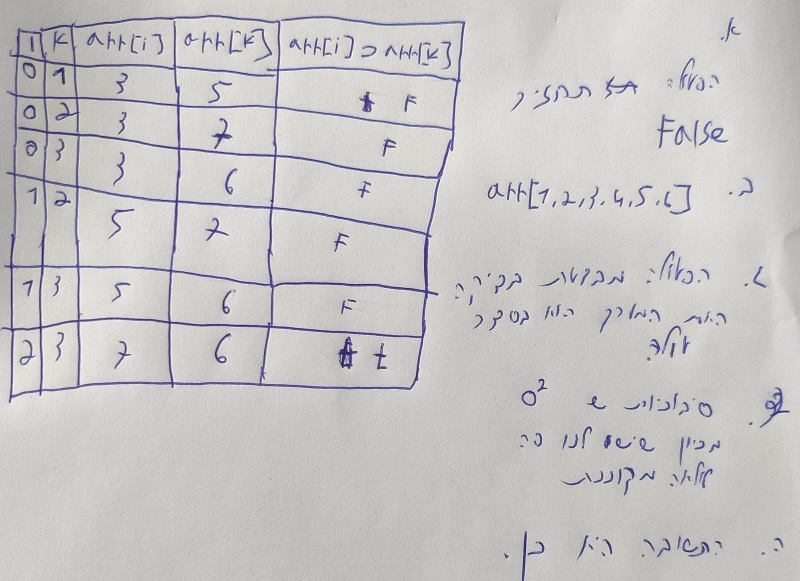 i k arr[i] arr[k] arr[i] > arr[k]
0 1 3 5 F
0 2 3 7 F
0 3 3 6 F
1 2 5 7 F
1 3 5 6 F
2 3 7 6 t
א.
הפעולה תחזיר
False
ב. arr[1,2,3,4,5,6]
ג. הפעולה מבצעת בדיקה
האם המערך הוא בסדר
עולה
ד. סיבוכיות של O²
מכיון שיש לנו פה
לולאה מקוננת
ה. התשובה היא כן.